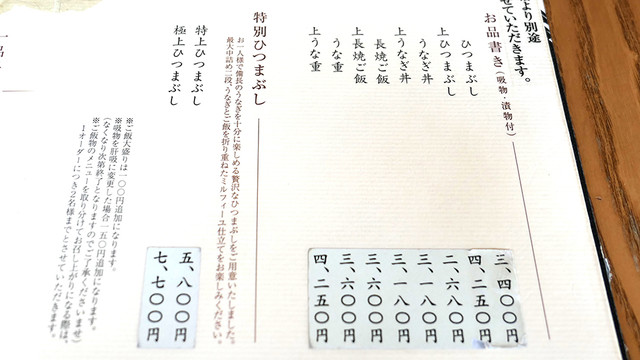 より別途
せていただきます。
お品書き(吸物・漬物付)
ひつまぶし 三、四〇〇円
上ひつまぶし 四、二五〇円
うなぎ丼 二、六八〇円
上うなぎ丼 三、一八〇円
長焼ご飯 三、一八〇円
上長焼ご飯 三、六〇〇円
うな重 三、六〇〇円
上うな重 四、二五〇円
特別ひつまぶし
お一人様で備長のうなぎを十分に楽しめる贅沢なひつまぶしをご用意いたしました。
最大中詰め二段、うなぎとご飯を折り重ねたミルフィーユ仕立てをお楽しみください。
特上ひつまぶし 五、八〇〇円
極上ひつまぶし 七、七〇〇円
※ご飯大盛りは一〇〇円追加になります。
※吸物を肝吸に変更した場合一五〇円追加になります。
(なくなり次第終了となりますのでご了承くださいませ)
※ご飯物のメニューを取り分けてお召し上がりになる際は、
1オーダーにつき2名様までとさせていただきます。
一品